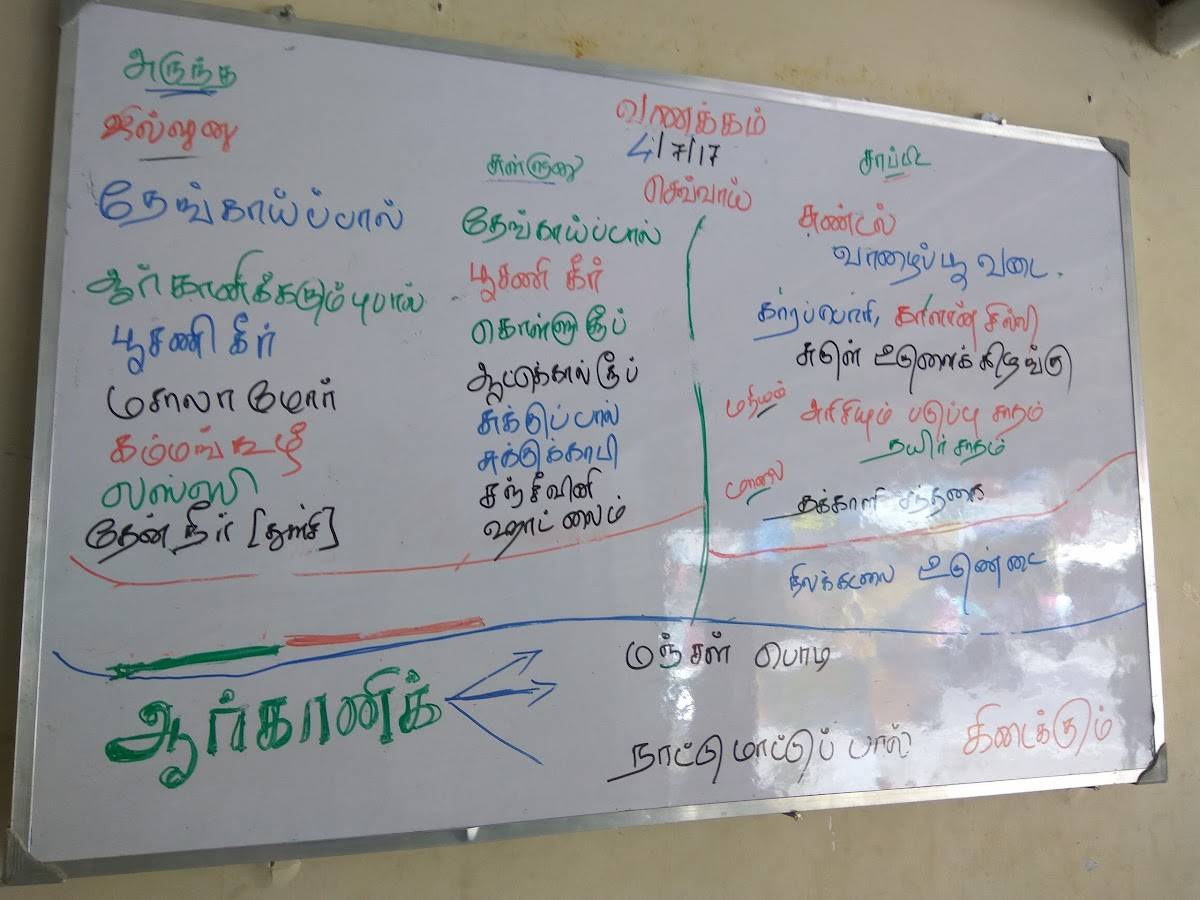 அருந்த
ஜில்லுனு
தேங்காய்ப்பால்
ஆர்கானிக்கரும்புபால்
பூசணி கீர்
மசாலா மோர்
கம்மங்கூழ்
லஸ்ஸி
தேன் நீர் [துளசி]
வணக்கம்
4/7/17
செவ்வாய்
சுள்ளுனு
தேங்காய்ப்பால்
பூசணி கீர்
கொள்ளு சூப்
ஆட்டுக்கால் சூப்
சுக்குப்பால்
சுக்குக்காபி
சஞ்சீவினி
ஹாட் லைம்
சாப்பிட
சுண்டல்
வாழைப்பூ வடை.
காரப்பொரி, காளான் சில்லி
சுருள் உருளைக்கிழங்கு
மதியம் அரிசியும் பருப்பு சாதம்
தயிர் சாதம்
மாலை தக்காளி சந்தகை
நிலக்கடலை உருண்டை
ஆர்கானிக்
மஞ்சள் பொடி
நாட்டு மாட்டுப் பால் கிடைக்கும்